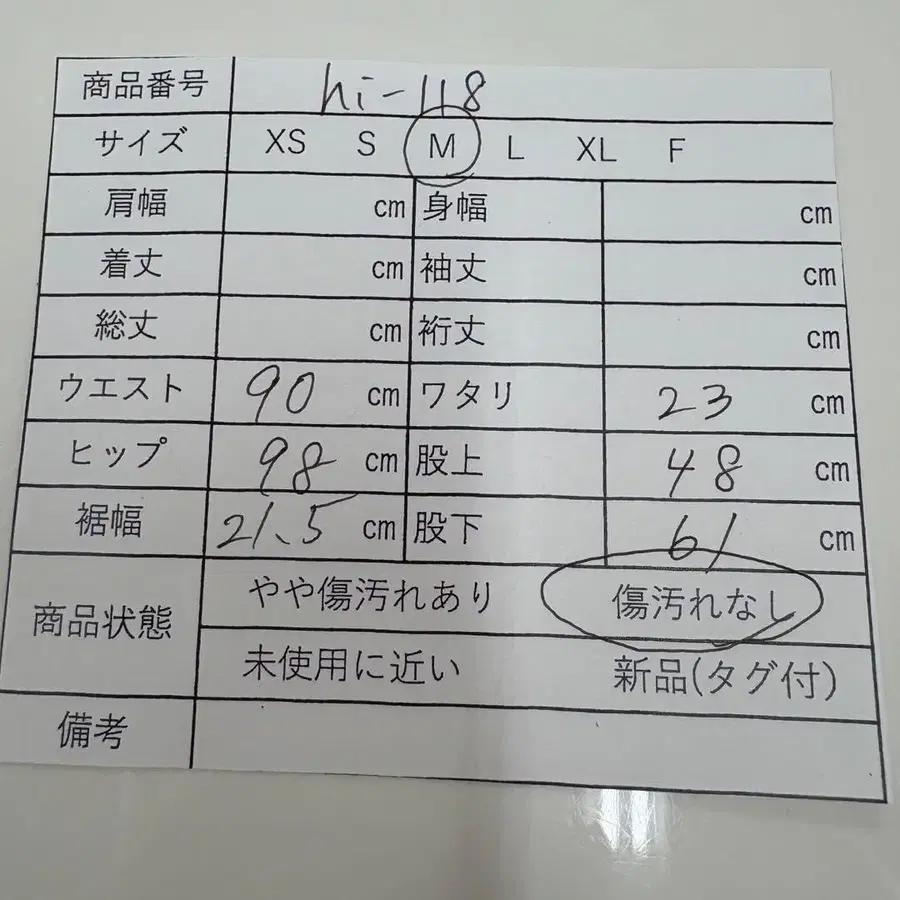 商品番号 hi-118
サイズ XS S M L XL F
肩幅 cm 身幅 cm
着丈 cm 袖丈 cm
総丈 cm 裄丈 cm
ウエスト 90 cm ワタリ 23 cm
ヒップ 98 cm 股上 48 cm
裾幅 21.5 cm 股下 61 cm
商品状態 やや傷汚れあり 傷汚れなし
未使用に近い 新品(タグ付)
備考